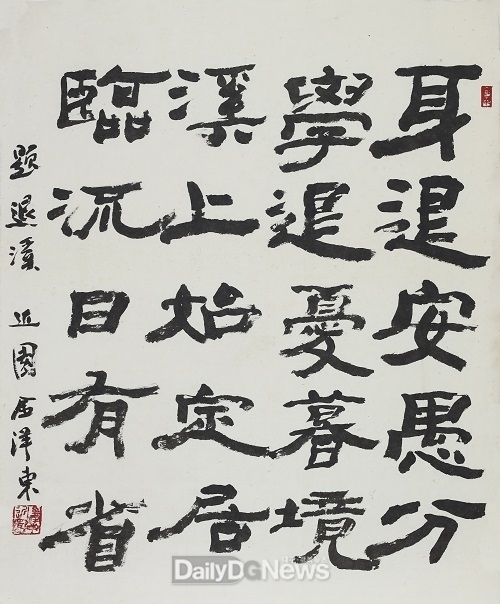 身退安愚分
學退憂暮境
溪上始定居
臨流日有省
題退溪 近園 金洋東
DailyDGNews